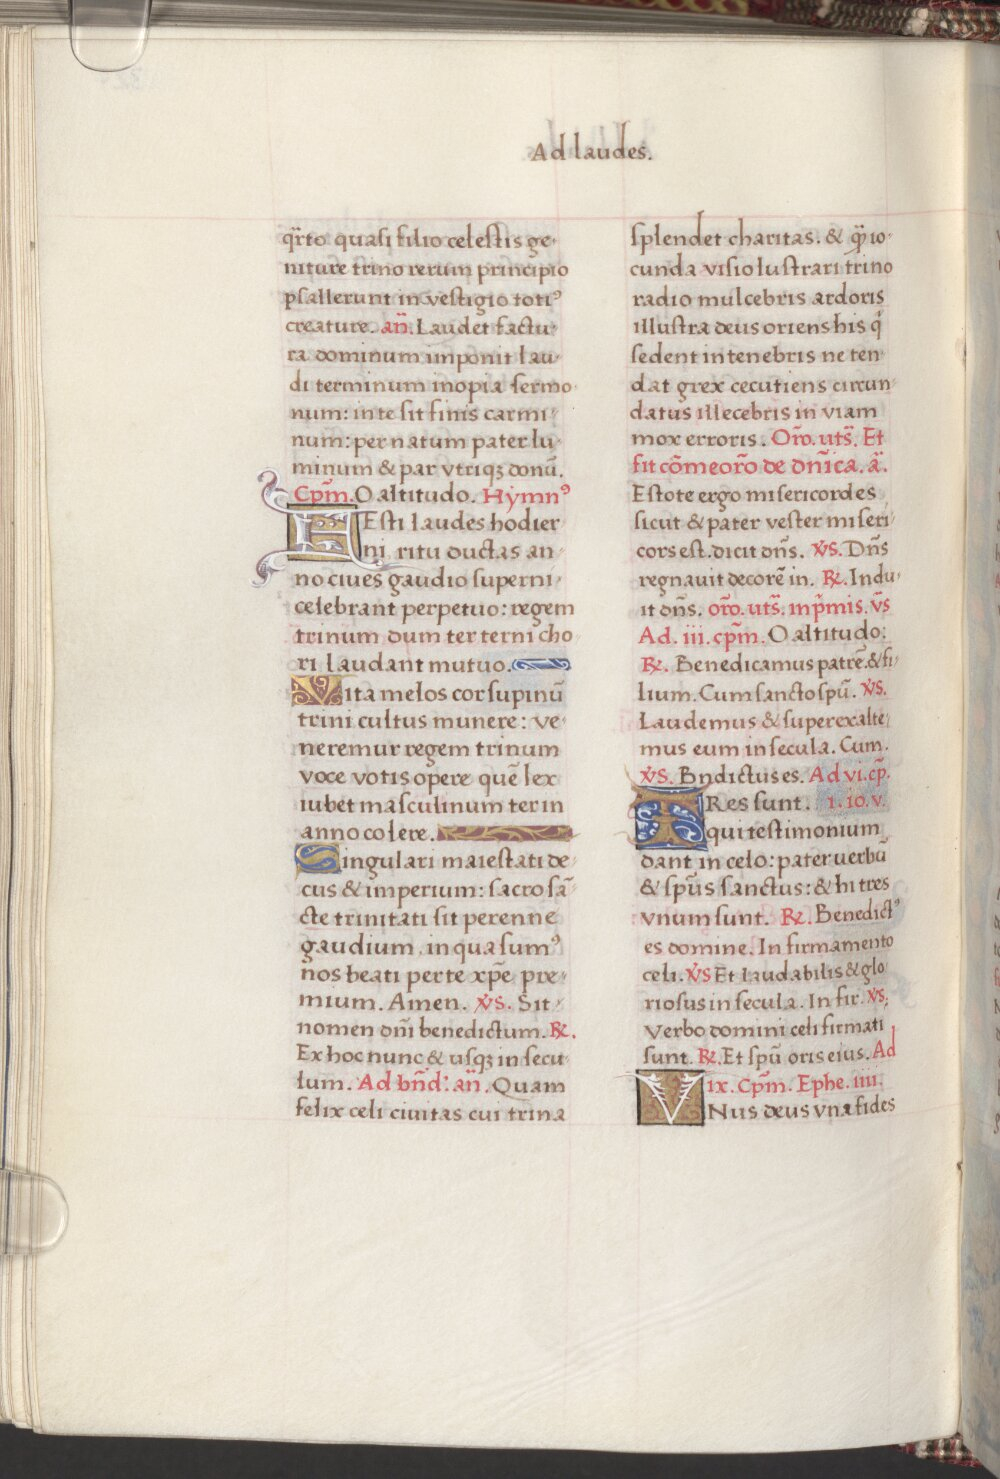 Ad laudes.
qrto quasi filio celestis ge-
niture trino rerum principio
psallerunt in vestigio toti⁹
creature. an̄. Laudet factu-
ra dominum imponit lau-
di terminum inopia sermo-
num: in te sit finis carmi-
num: per natum pater lu-
minum & par vtriqꝫ donū.
Cpm̄. O altitudo. Hymn⁹
FEsti laudes hodier-
ni ritu ductas an-
no ciues gaudio superni-
celebrant perpetuo: regem
trinum dum ter terni cho-
ri laudant mutuo.
Vita melos cor supinū
trini cultus munere: ve-
neremur regem trinum
voce votis opere quē lex
iubet masculinum ter in
anno colere.
Singulari maiestati de-
cus & imperium: sacro sā-
cte trinitati sit perenne
gaudium, in qua sum⁹
nos beati per te xp̄e pre-
mium. Amen. v̇s. Sit
nomen dn̄i benedictum. ℞.
Ex hoc nunc & usqꝫ in secu-
lum. Ad bn̄d'. an̄. Quam
felix celi ciuitas cui trina
splendet charitas. & q̄ȝ io-
cunda visio lustrari trino
radio mulcebris ardoris
illustra deus oriens his q̇
sedent in tenebris ne ten-
dat grex cecutiens circun-
datus illecebris in viam
mox erroris. Orō. uts̄. Et
fit cōmeorō de dn̄ica. ā.
Estote ergo misericordes
sicut & pater vester miseri-
cors est. dicit dn̄s. v̇s. Dn̄s
regnauit decorē in. ℞. Indu-
it dn̄s. orō. uts̄. inp̄mis. v̄s
Ad. iii. cpm̄. O altitudo:
℞. Benedicamus patrē. & fi-
lium. Cum sancto spū. v̇s.
Laudemus & superexalte-
mus eum in secula. Cum.
v̇s. Bndictus es. Ad vi. cp̄.
TRes sunt. 1. io. v.
qui testimonium
dant in celo: pater uerbū
& spūs sanctus: & hi tres
vnum sunt. ℞. Benedict⁹
es domine. In firmamento
celi. v̇s Et laudabilis & glo-
riosus in secula. In fir. v̇s.
Verbo domini celi firmati
sunt. ℞. Et spū oris eius. Ad
ix. Cpm̄. Ephe. iiii.
VNus deus vna fides